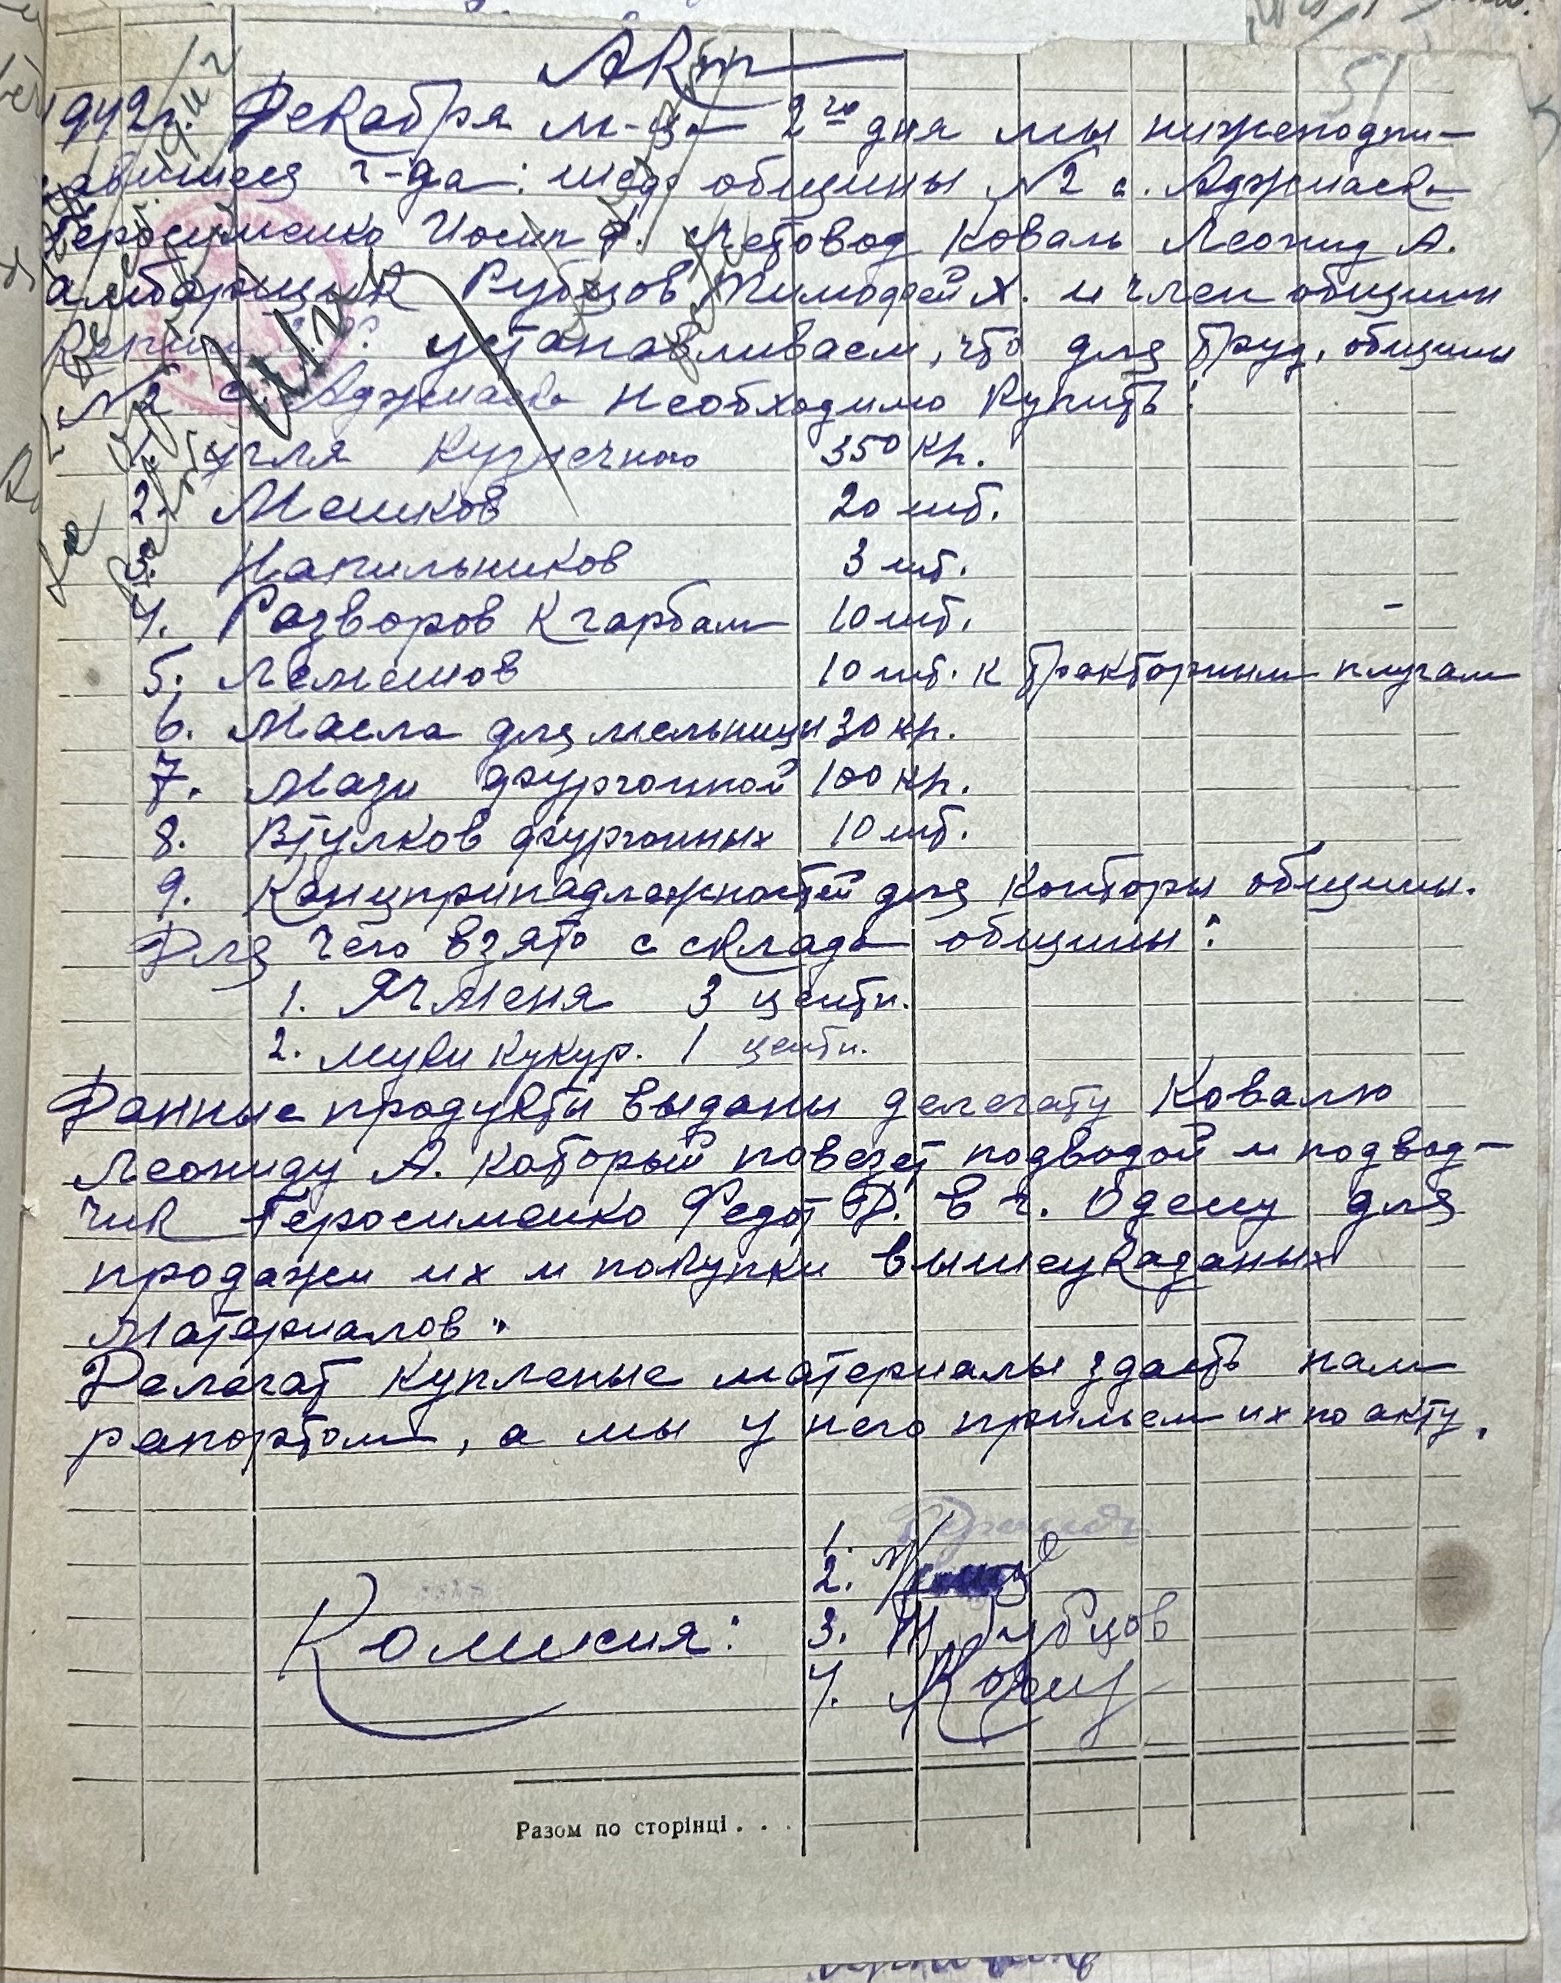 Акт
51
1942 г. Декабря м-ца 2го дня мы нижеподпи-
савшиеся г-да: шеф общины №2 с. Аджиаска
Геросименко Иосип Ф. счетовод Коваль Леонид А.
амбарщик Рубцов Тимофей Х. и член общины
устанавливаем, что для труд. общины
№2 с. Аджиаска необходимо купить:
1. угля кузнечного 350 кг.
2. Мешков 20 шт.
3. Напильников 3 шт.
4. Розворов к гарбам 10 шт.
5. Лемешов 10 шт. к тракторным плугам
6. Масла для мельницы 30 кг.
7. Мази фургонной 100 кг.
8. Втулков фургонных 10 шт.
9. Канцпринадлежностей для конторы общины.
Для чего взято с склада общины:
1. Ячменя 3 центн.
2. муки кукур. 1 центн.
Данные продукты выданы делегату Ковалю
Леониду А. который повезет подводой и подвод-
чик Геросименко Федот Ф. в г. Одессу для
продажи их и покупки вышеуказаных
Материалов.
Делегат купленые материалы здасть нам
рапортом, а мы у него примем их по акту.
1.
2.
Комисия: 3. Т. Рубцов
4.
Разом по сторінці . . .